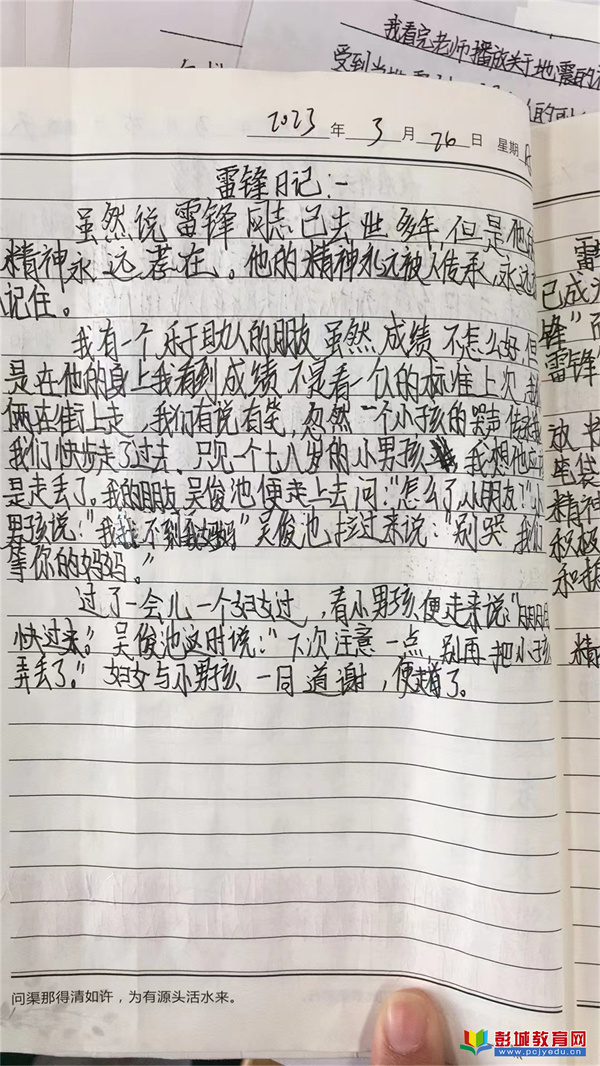 我看完老师播放关于地震的
受到
2023 年 3 月 26 日 星期
雷锋日记:
虽然说雷锋同志已去世多年,但是他
精神永远存在。他的精神永远被人传承,永远
记住。
我有一个乐于助人的朋友虽然成绩不怎么好,但
是在他的身上我看到成绩不是看一个人的标准上次,
俩在街上走,我们有说有笑,忽然一个小孩的哭声传
我们快步走了过去,只见一个七八岁的小男孩 我想他
是走丢了。我的朋友吴俊池便走上去问:“怎么了小朋友?”小
男孩说:“我找不到我妈妈”吴俊池 过来说:“别哭我们
等你的妈妈。”
过了一会儿一个妇女过,看小男孩便走来说:“
快过来。”吴俊池这时说:“下次注意一点,别再把小孩
弄丢了。”妇女与小男孩一同道谢,便走了。
问渠那得清如许,为有源头活水来。
雷
已成
锋”
雷锋
精神
积极
精
彭城教育网
www.pcjyedu.cn